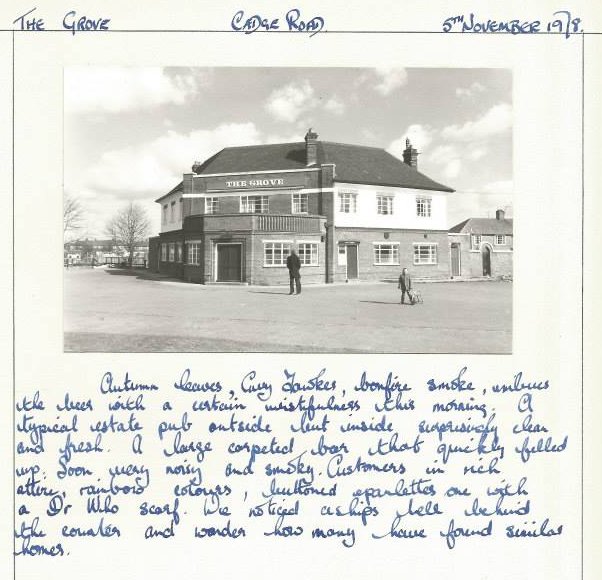 THE GROVE CADGE ROAD 5TH NOVEMBER 1978.
THE GROVE
Autumn leaves, Guy Fawkes, bonfire smoke, imbues
the beer with a certain wistfulness this morning. A
typical estate pub outside but inside, surprisingly clean
and fresh. A large carpeted bar that quickly filled
up. Soon very noisy and smoky. Customers in rich
attire, rainbow colours, buttoned epaulettes one with
a Dr Who scarf. We noticed a ships bell behind
the counter and wonder how many have found similar
homes.